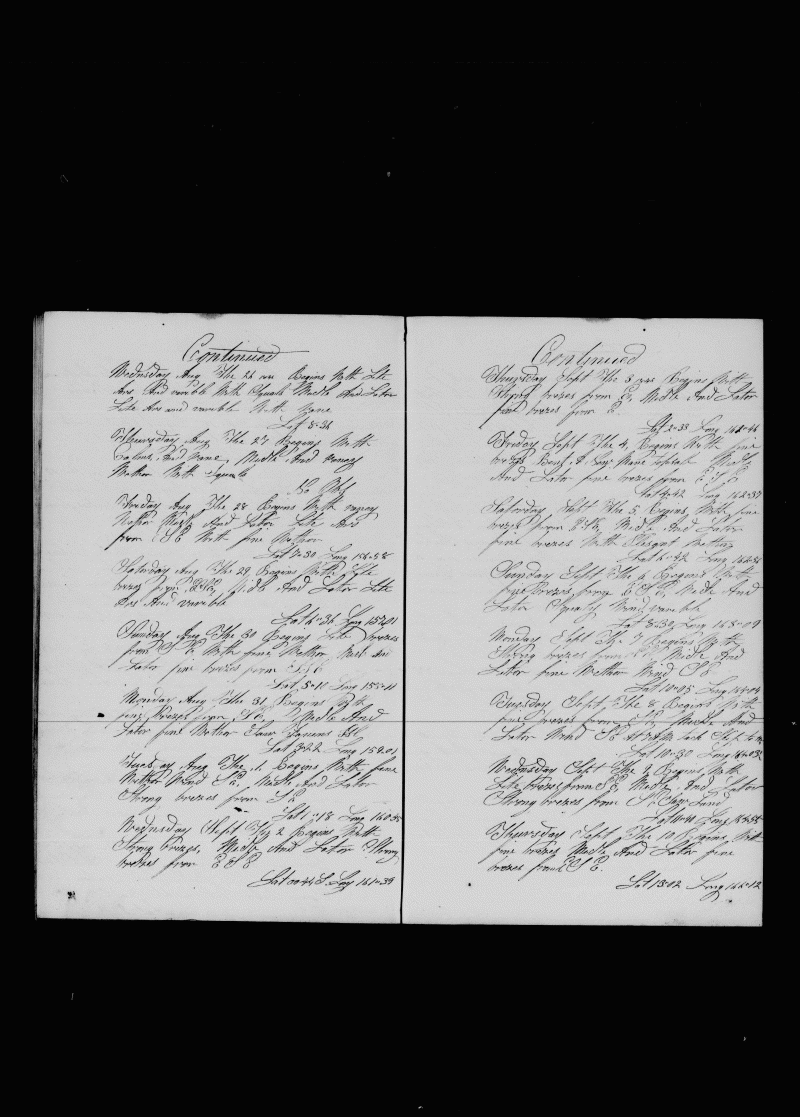 Continued
Wednesday Aug The 26 Begins With Lite
Airs And varable With Squals Midle And Later
Lite Airs and varable With Rane
Lat 8-36
Thursday Aug The 27 Begins With
Calms, And Rane, Midle And
Wether With Squals
No Obs
Friday Aug The 28 Begins With
Wether Midle And Later Lite And
from ESE With fine Wether
Lat 7-30 Long 156-58
Saturday Aug The 29 Begins With Lite
brezes from Midle And Later Lite
Airs And varable
Lat 6-36 Long 157-01
Sunday Aug The 30 Begins Lite brezes
from S E With fine Wether Midle And
Later fine brezes from ESE
Lat 5-10 Long 158-11
Monday Aug The 31 Begins With
fine Brezes from SE, Midle And
Later fine Wether
Lat 3-22 Long 159-01
Tuesday Aug The 1 Begins With fine
Wether Wind SE, Midle And Later
Strong brezes from S E
Lat 1-18 Long 160-25
Wednesday Sept The 2 Begins With
Strong brezes, Midle And Later Strong
brezes from E S E
Lat 00-44 S. Long 161-39
Continued
Thursday Sept The 3 Begins With
Strong brezes from E, Midle And Later
fine brezes from E
Lat 2-33 Long 162-46
Friday Sept The 4, Begins With fine
brezes Midle
And Later fine brezes from E S E
Lat 4-42 Long 162-37
Saturday Sept The 5 Begins With fine
brezes from Midle And Later
fine brezes With Plesant Wether
Lat 6-42 Long 162-36
Sunday Sept The 6 Begins With
fine brezes from E S E Midle And
Later Squaly Wind varable
Lat 8-39 Long 163-09
Monday Sept The 7 Begins With
Strong brezes from Midle And
Later fine Wether Wind S E
Lat 10-05 Long 164-04
Tuesday Sept The 8 Begins With
fine brezes from Midle And
Later Wind S E
Lat 10-30 Long
Wednesday Sept The 9 Begins With
Lite brezes from SE Midle And Later
Strong brezes from
Lat 10-41 Long
Thursday Sept The 10 Begins With
fine brezes Midle And Later fine
brezes from E S E.
Lat 13-02 Long 166-12